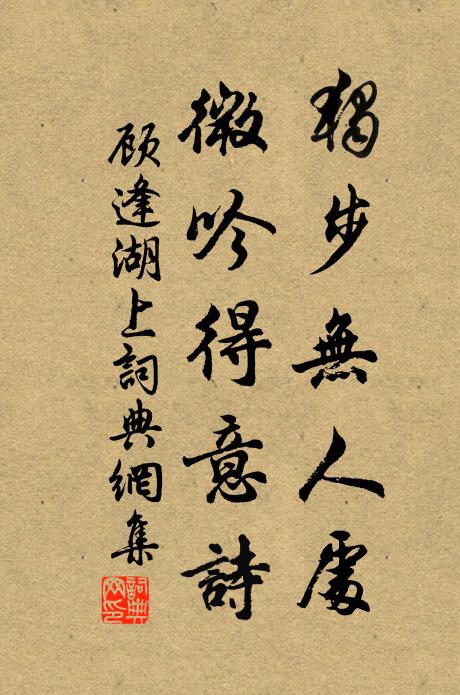 獨步無人處
微吟得意詩
顾逢湖上詞典網集
詞典
网印